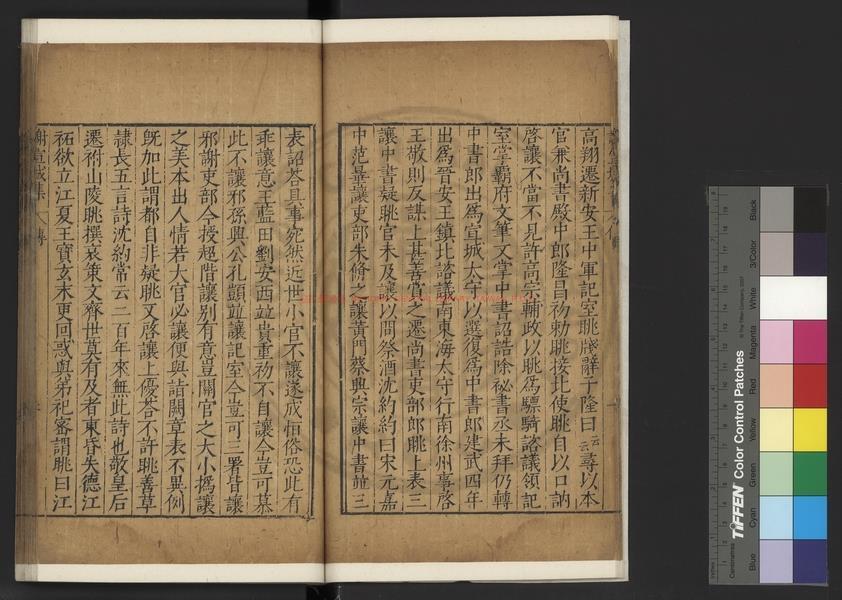 高翔遷新安王中軍記室眺牋辭子隆曰云云尋以本
官兼尚書殿中郎隆昌初勑眺接北使眺自以口訥
啓讓不當不見許高宗輔政以眺為驃騎諮議領記
室掌霸府文筆又掌中書詔誥除祕書丞未拜仍轉
中書郎出為宣城太守以選復為中書郎建武四年
出為晉安王鎮北諮議南東海太守行南徐州事啓
王敬則反謀上甚善賞之遷尚書吏部郎眺上表三
讓中書疑眺官未及讓以問祭酒沈約約曰宋元嘉
中范曄讓吏部朱脩之讓黃門蔡興宗讓中書並三
表詔荅具事宛然近世小官不讓遂成恒俗恐此有
乖讓意王藍田劉安西竝貴重初不自讓今豈可慕
此不讓邪孫興公孔顗竝讓記室今豈可三署皆讓
邪謝吏部今授超階讓別有意豈關官之大小撝讓
之美本出人情若大官必讓便與詣闕章表不異例
旣如此謂都自非疑眺又啓讓上優荅不許眺善草
隷長五言詩沈約常云二百年來無此詩也敬皇后
遷祔山陵眺撰哀策文齊世莫有及者東昏失德江
祏欲立江夏王寶玄末更回惑與弟祀密謂眺曰江
謝宣城集 傳